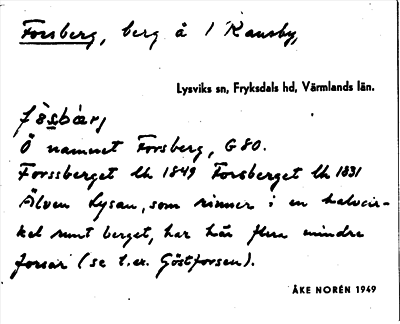 Forsberg, berg å 1 Ransby,
Lysviks sn, Fryksdals hd, Värmlands län.
fòsbærj
Ö namnet Forsberg, G80.
Forssberget lh 1849 Forsberget lh 1831
Älven Lysan, som rinner i en halvcir-
kel runt berget, har här flera mindre
forsar (se t.ex. Göstforsen).
ÅKE NORÉN 1949